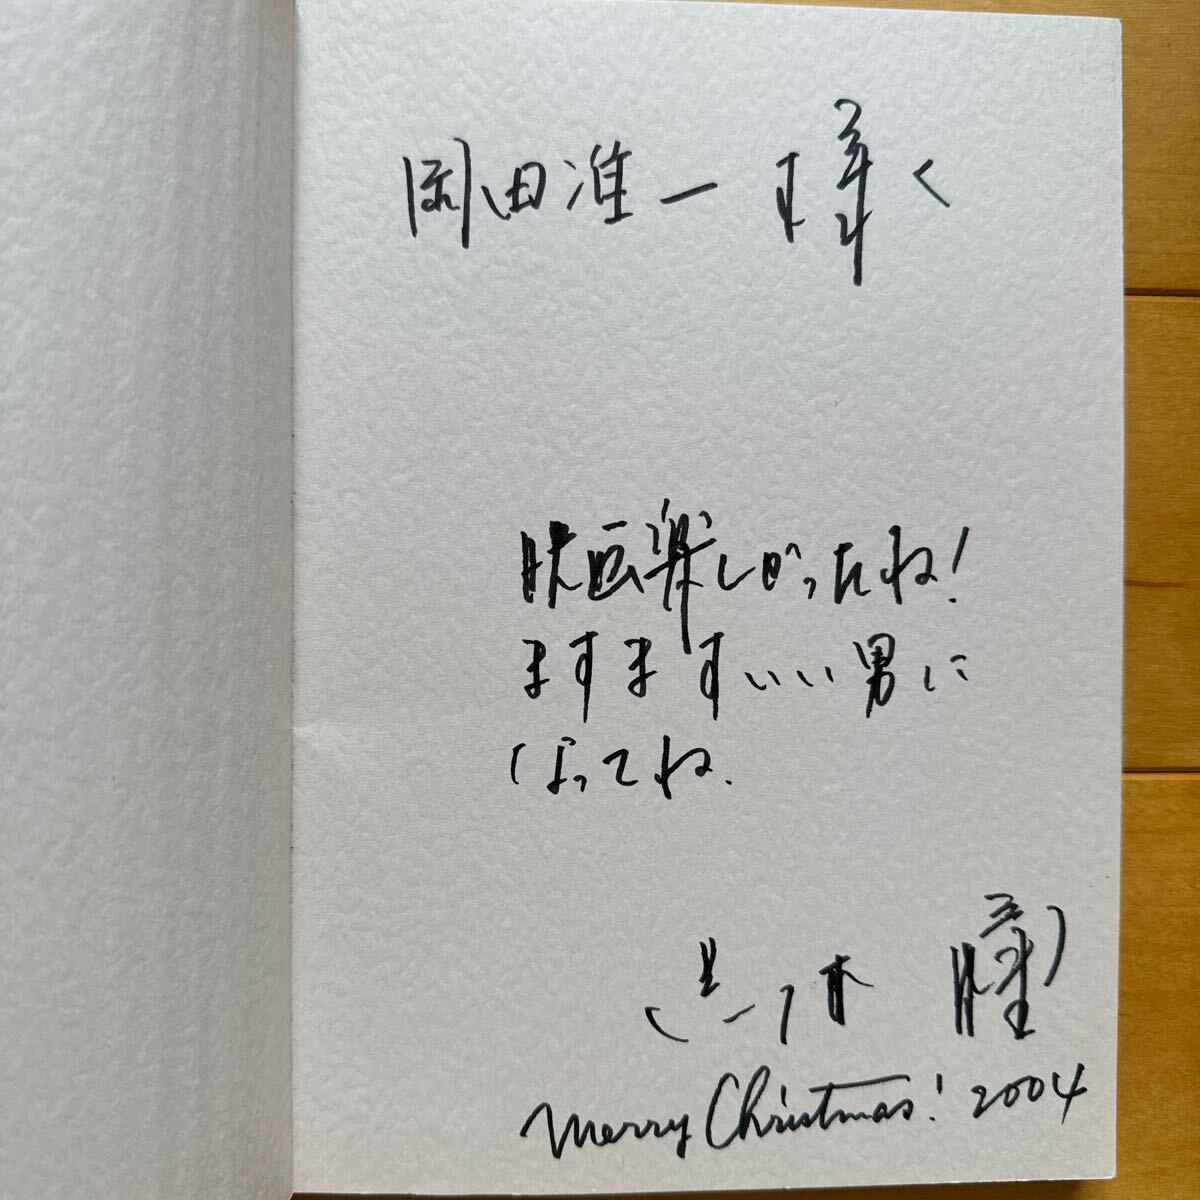 岡田准一様へ
映画楽しかったね!
ますますいい男に
なってね.
黒木瞳
Merry Christmas! 2004